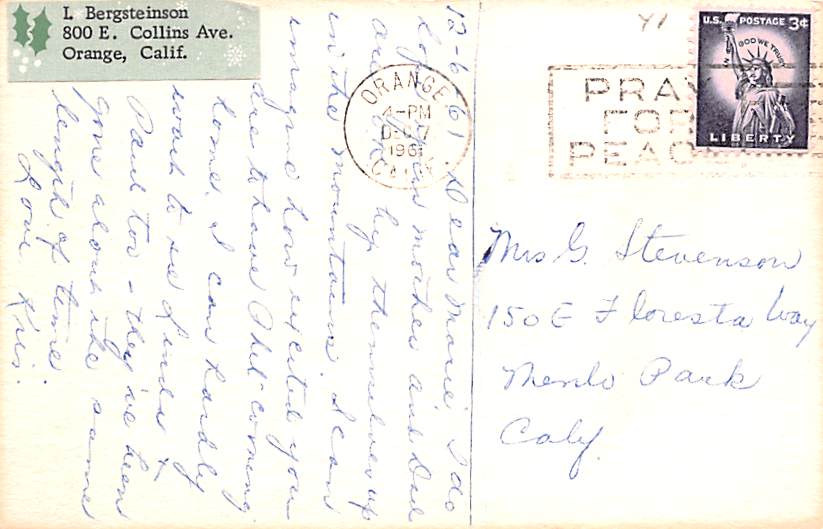 L Bergsteinson
800 E. Collins Ave.
Orange, Calif.
12-6-61. Dear Marie, I do
hope mother and Dad
are by themselves up
in the mountains. I can
imagine how excited you
are to have Phil coming
home. I can hardly
wait to see Linda &
Paul too - they've been
gone about the same
length of time
Love Kris.
ORANGE
4-PM
DEC 7
1961
CALIF
PRAY
FOR
PEACE
U.S. POSTAGE 3¢
IN GOD WE TRUST
LIBERTY
Mrs G. Stevenson
150 E Floresta Way
Menlo Park
Calif.